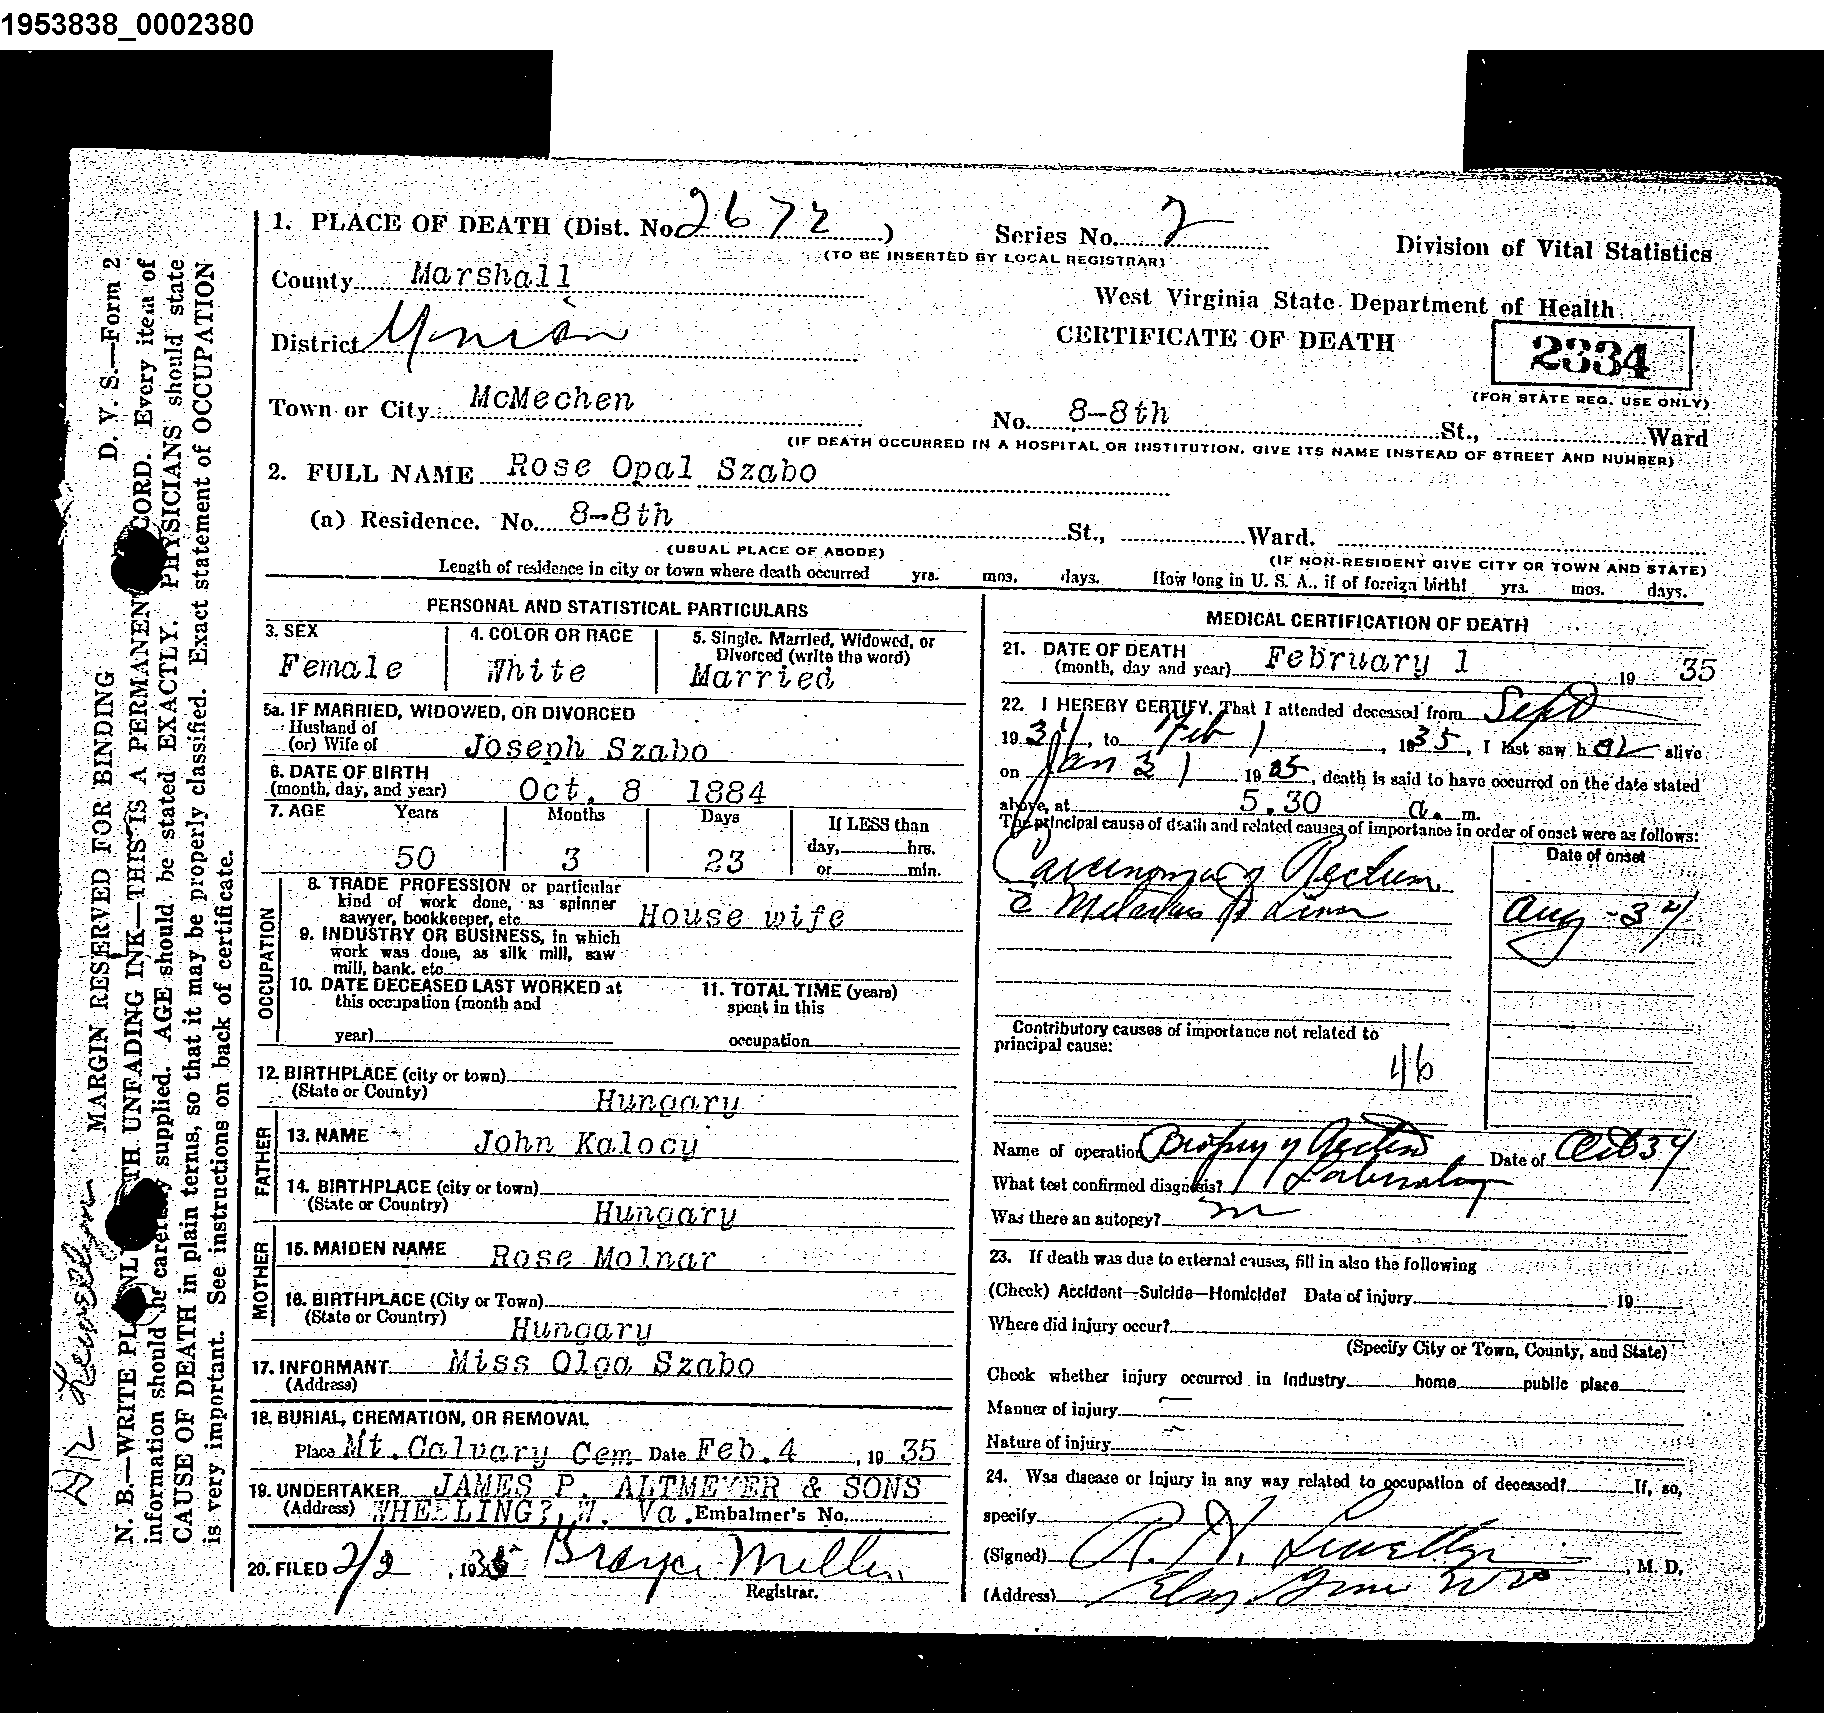 1953838_0002380
1. PLACE OF DEATH (Dist. No. 2672 )
Series No. 2
(TO BE INSERTED BY LOCAL REGISTRAR)
Division of Vital Statistics
County Marshall
West Virginia State Department of Health
District Union
CERTIFICATE OF DEATH
2334
(FOR STATE REG. USE ONLY)
Town or City McMechen
No. 8-8th St., Ward
(IF DEATH OCCURRED IN A HOSPITAL OR INSTITUTION, GIVE ITS NAME INSTEAD OF STREET AND NUMBER)
2. FULL NAME Rose Opal Szabo
(a) Residence. No. 8-8th St., Ward.
(USUAL PLACE OF ABODE)
(IF NON-RESIDENT GIVE CITY OR TOWN AND STATE)
Length of residence in city or town where death occurred yrs. mos. days. How long in U. S. A., if of foreign birth? yrs. mos. days.
PERSONAL AND STATISTICAL PARTICULARS
3. SEX
Female
4. COLOR OR RACE
White
5. Single. Married, Widowed, or
Divorced (write the word)
Married
5a. IF MARRIED, WIDOWED, OR DIVORCED
Husband of
(or) Wife of Joseph Szabo
6. DATE OF BIRTH
(month, day, and year) Oct. 8 1884
7. AGE Years Months Days
50 3 23
If LESS than
day, hrs.
or min.
OCCUPATION
8. TRADE PROFESSION or particular
kind of work done, as spinner
sawyer, bookkeeper, etc. House wife
9. INDUSTRY OR BUSINESS, in which
work was done, as silk mill, saw
mill, bank. etc.
10. DATE DECEASED LAST WORKED at
this occupation (month and
year)
11. TOTAL TIME (years)
spent in this
occupation
12. BIRTHPLACE (city or town)
(State or County) Hungary
FATHER
13. NAME John Kalocy
14. BIRTHPLACE (city or town)
(State or Country) Hungary
MOTHER
15. MAIDEN NAME Rose Molnar
16. BIRTHPLACE (City or Town)
(State or Country) Hungary
17. INFORMANT Miss Olga Szabo
(Address)
18. BURIAL, CREMATION, OR REMOVAL
Place Mt. Calvary Cem Date Feb. 4, 19 35
19. UNDERTAKER JAMES P. ALTMEYER & SONS
(Address) WHEELING?, W. Va. Embalmer's No.
20. FILED 2/2, 1935 Miller
Registrar.
MEDICAL CERTIFICATION OF DEATH
21. DATE OF DEATH
(month, day and year) February 1 19 35
22. I HEREBY CERTIFY, That I attended deceased from Sept
1934, to Feb 1, 1935, I last saw h er alive
on Jan 31 1935, death is said to have occurred on the date stated
above, at 5.30 a. m.
The principal cause of death and related causes of importance in order of onset were as follows:
Date of onset
Carcinoma of Rectum
c̄ Metastasis to Liver
Aug - 34
Contributory causes of importance not related to
principal cause:
46
Name of operation Biopsy of Rectum Date of Oct 34
What test confirmed diagnosis? Laboratory
Was there an autopsy? no
23. If death was due to external causes, fill in also the following
(Check) Accident—Suicide—Homicide? Date of injury 19
Where did injury occur?
(Specify City or Town, County, and State)
Check whether injury occurred in industry home public place
Manner of injury
Nature of injury
24. Was disease or injury in any way related to occupation of deceased? If, so,
specify
(Signed) R. H. Lewellyn, M. D.
(Address) Elm Grove W Va
D. V. S.—Form 2
MARGIN RESERVED FOR BINDING
N. B.—WRITE PLAINLY WITH UNFADING INK—THIS IS A PERMANENT RECORD. Every item of
information should be carefully supplied. AGE should be stated EXACTLY. PHYSICIANS should state
CAUSE OF DEATH in plain terms, so that it may be properly classified. Exact statement of OCCUPATION
is very important. See instructions on back of certificate.
Dr Lewellyn